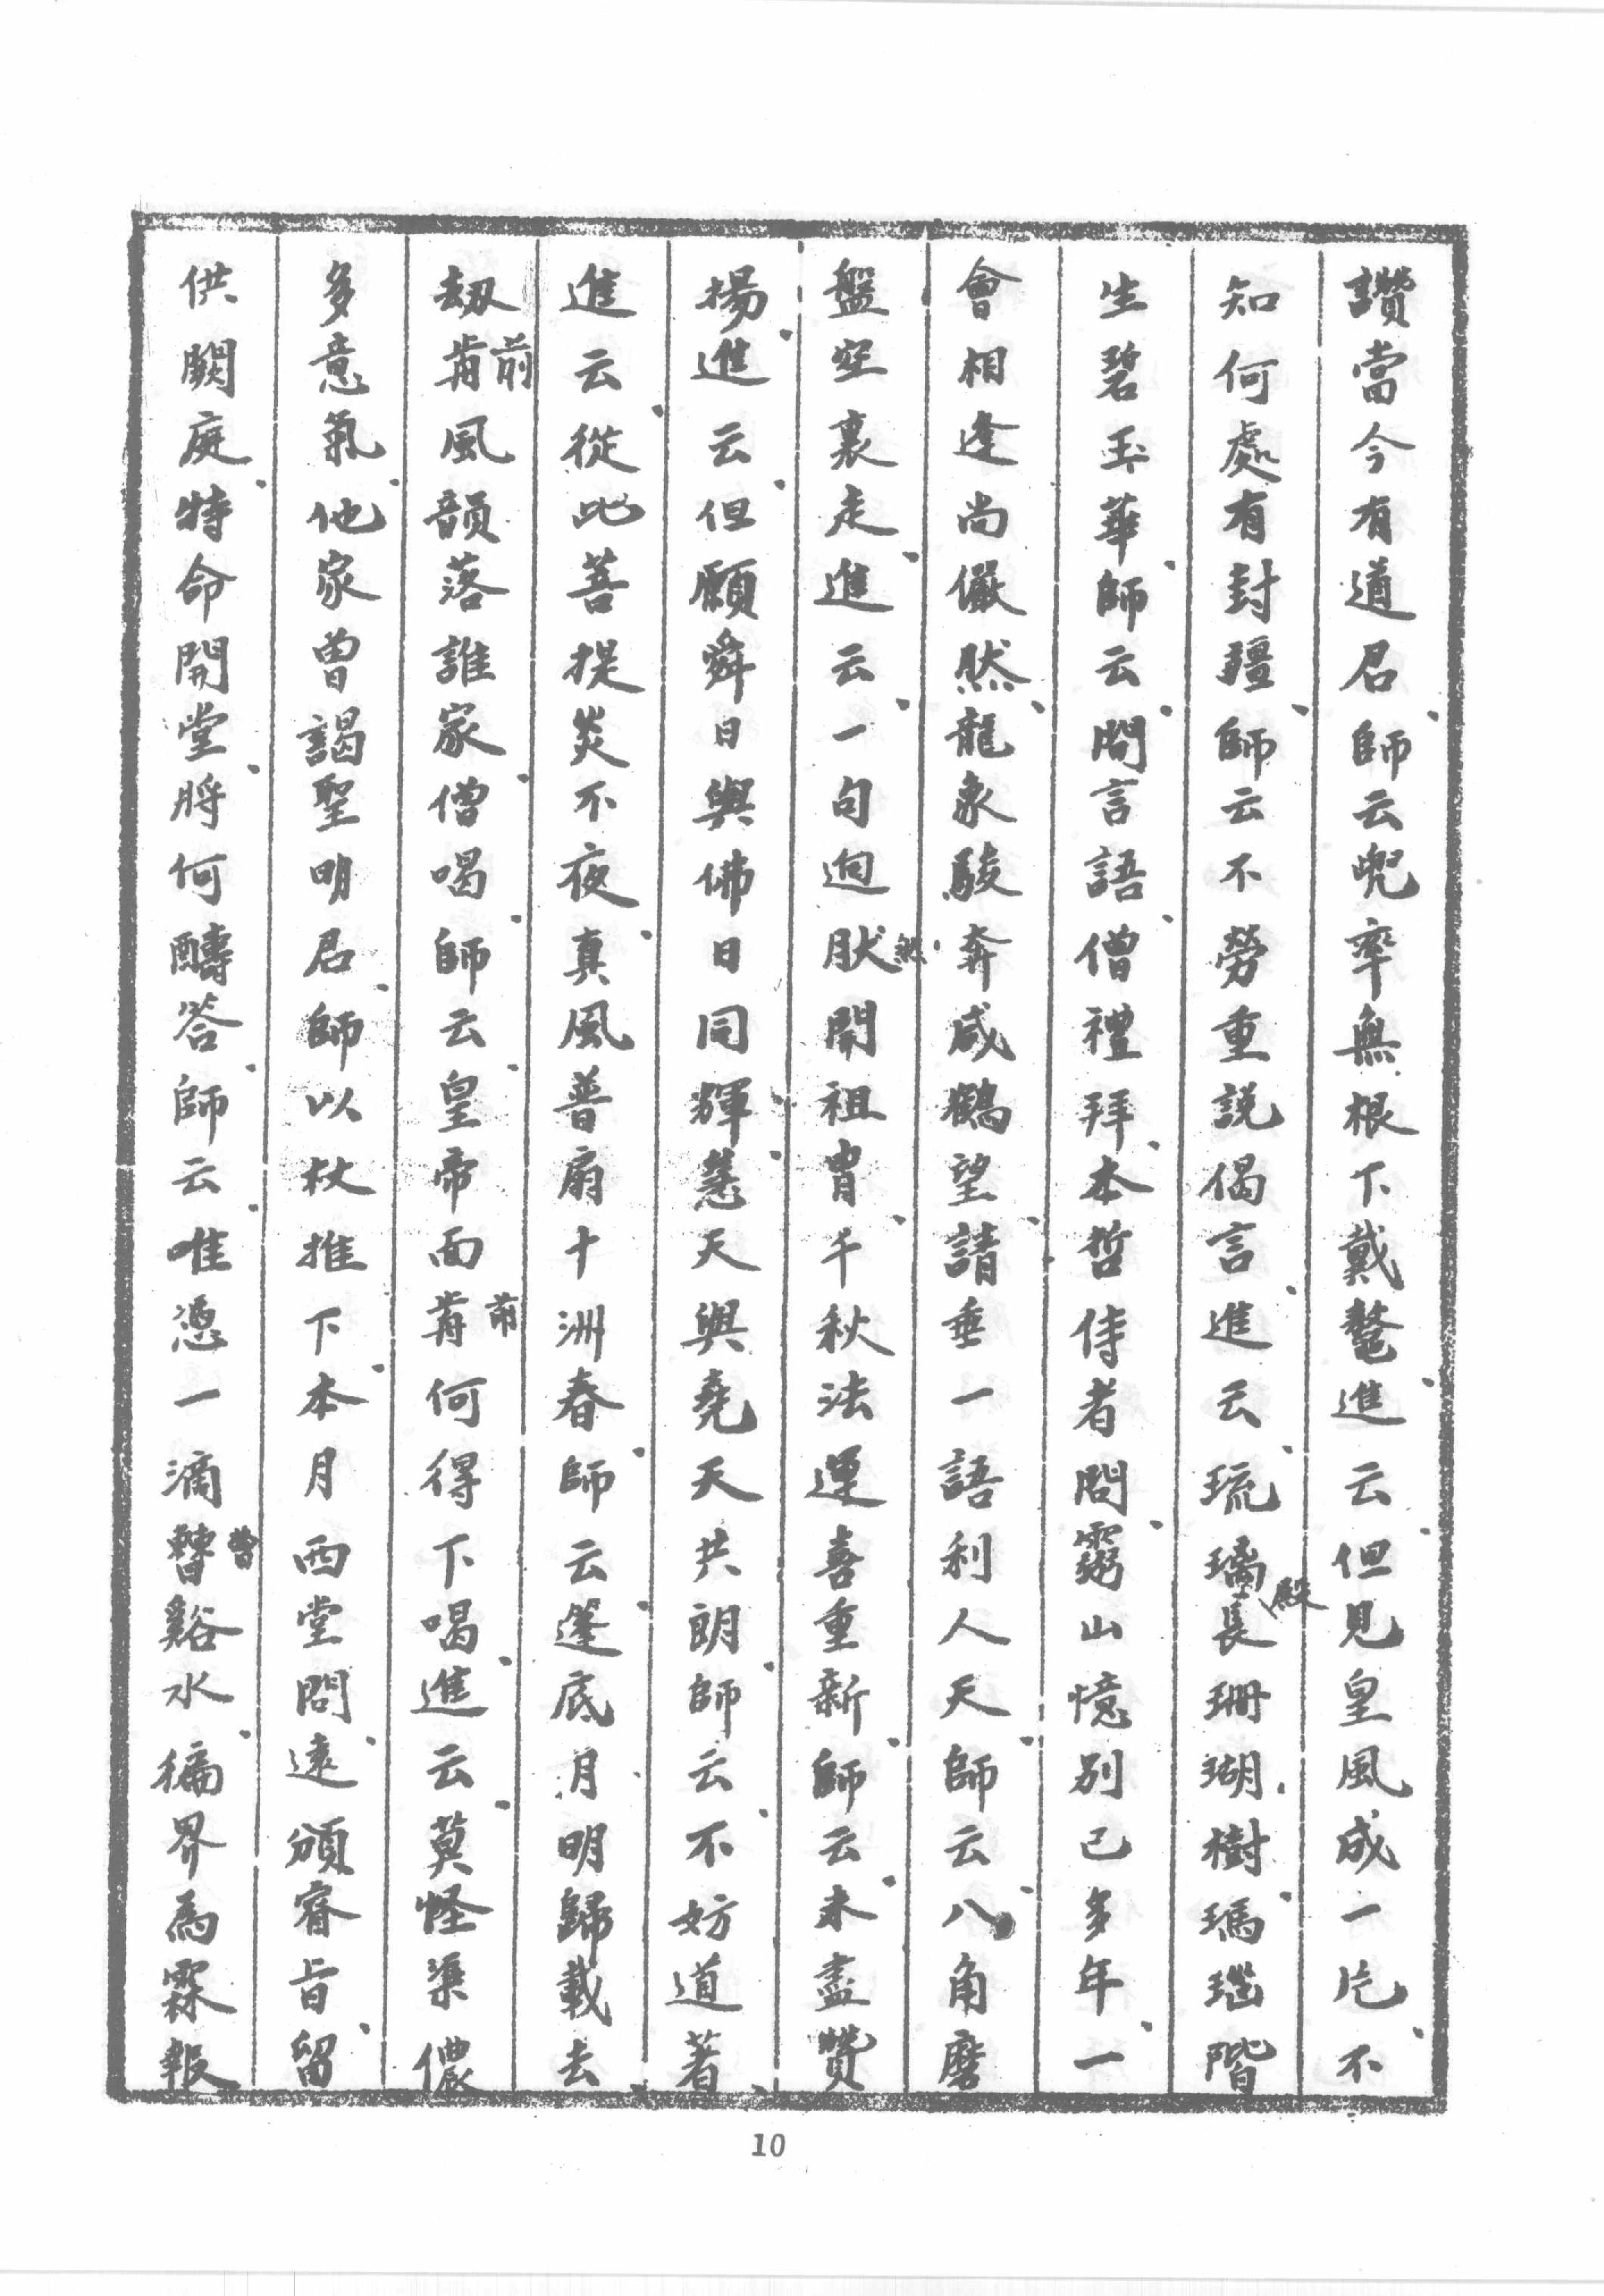 讚當今有道君師云兜率無根下戴鼇進云但見皇風成一片不
知何處有封疆師云不勞重說偈言進云琉璃殿長珊瑚樹瑪瑙階
生碧玉華師云閒言語僧禮拜本哲侍者問靈山憶別已多年一
會相逢尚儼然龍象駿奔咸鶴望請垂一語利人天師云八角磨
盤空裏走進云一句迥肰然開祖胄千秋法運喜重新師云未盡贊
揚進云但願舜日與佛日同輝慈天與堯天共朗師云不妨道著
進云從此菩提炎不夜真風普扇十洲春師云篷底月明歸載去
劫歬前風韻落誰家僧喝師云皇帝面歬前何得下喝進云莫怪渠儂
多意氣他家曾謁聖明君師以杖推下本月西堂問遠頒睿旨留
供闕庭特命開堂將何酬答師云唯憑一滴曹谿水徧界為霖報
10